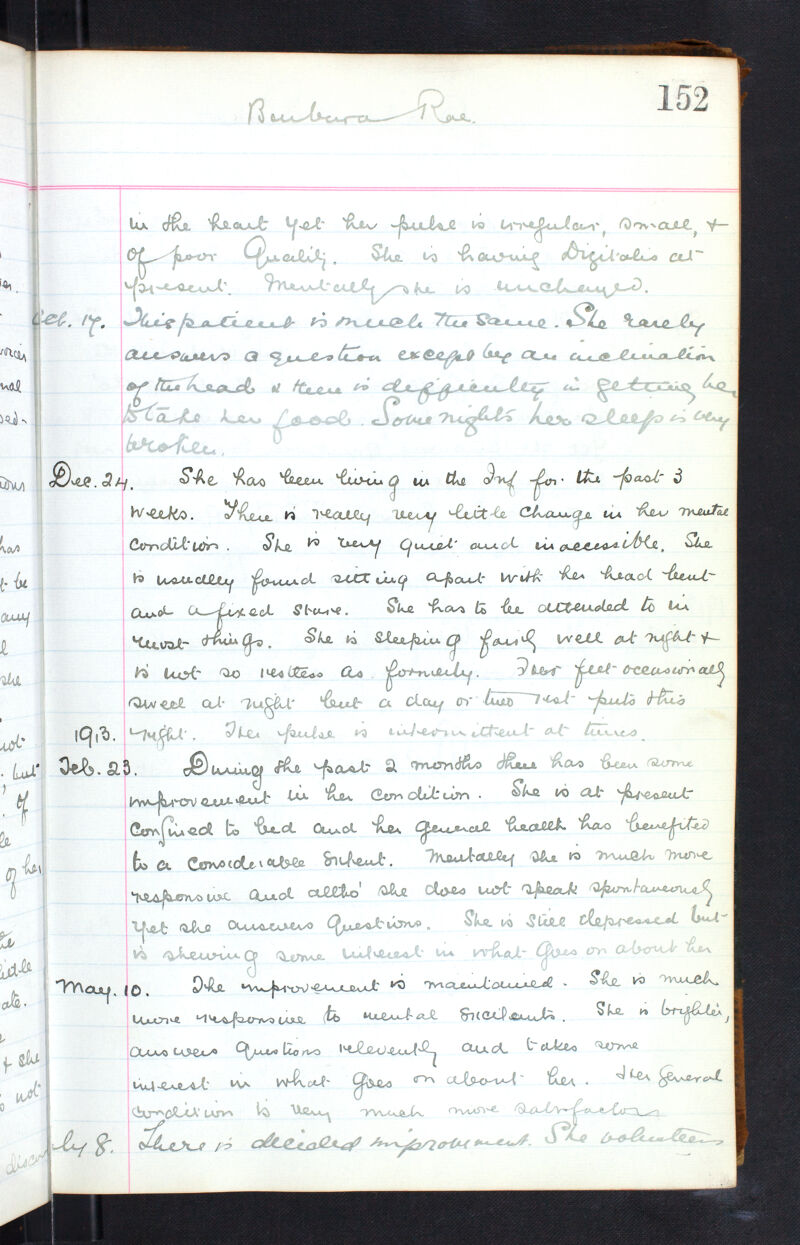 152
Barbara Rae.
in the heart yet her pulse is irregular, small, +
of poor Quality. She is having Digitalis at
present. Mentally she is unchanged.
Oct. 17. This patient is much the same. She rarely
answers a question except by an inclination
of the head & there is difficulty in getting her
to take her food. Some nights her sleep is very
broken.
Dec. 24. She has been living in the Inf for the past 3
weeks. There is really very little change in her mental
condition. She is very quiet and inaccessible. She
is usually found sitting apart with her head bent
and a fixed stare. She has to be attended to in
most things. She is sleeping fairly well at night +
is not so restless as formerly. Her feet occasionally
swell at night but a day or two rest puts this
1913. right. Her pulse is intermittent at times.
Feb. 23. During the past 2 months there has been some
improvement in her condition. She is at present
confined to bed and her general health has benefited
to a considerable extent. Mentally she is much more
responsive and altho' she does not speak spontaneously
yet she answers Questions. She is still depressed but
is shewing some interest in what goes on about her
May. 10. The improvement is maintained. She is much
more responsive to mental excitants. She is brighter,
answers Questions relevently and takes some
interest in what goes on about her. Her general
condition is very much more satisfactory
ly 8. There is decided improvement. She volunteers